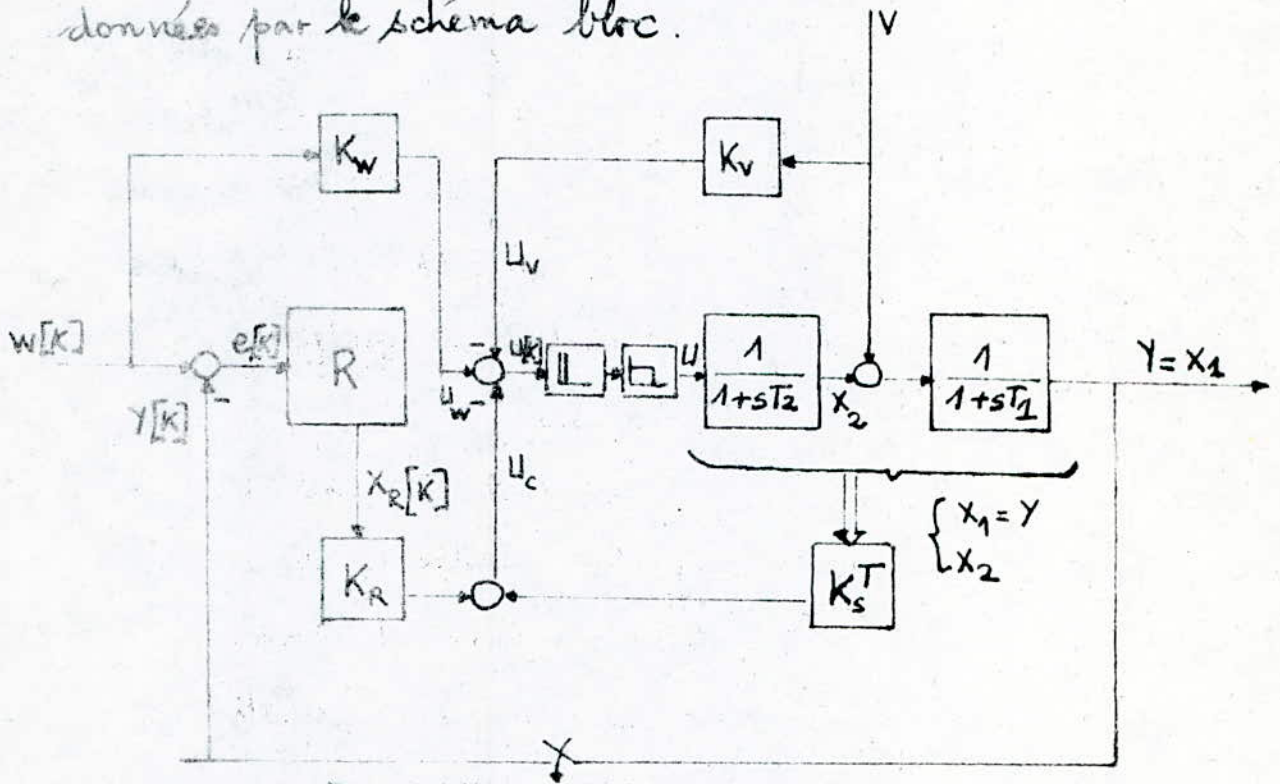 données par le schéma bloc.
V
K_W
K_V
U_V
W[K]
e[K]
R
u[K]
U
1
1+sT2
X_2
1
1+sT1
Y=X_1
U_W
-
-
Y[K]
-
U_C
X_R[K]
{ X_1=Y
X_2
K_R
K_S^T